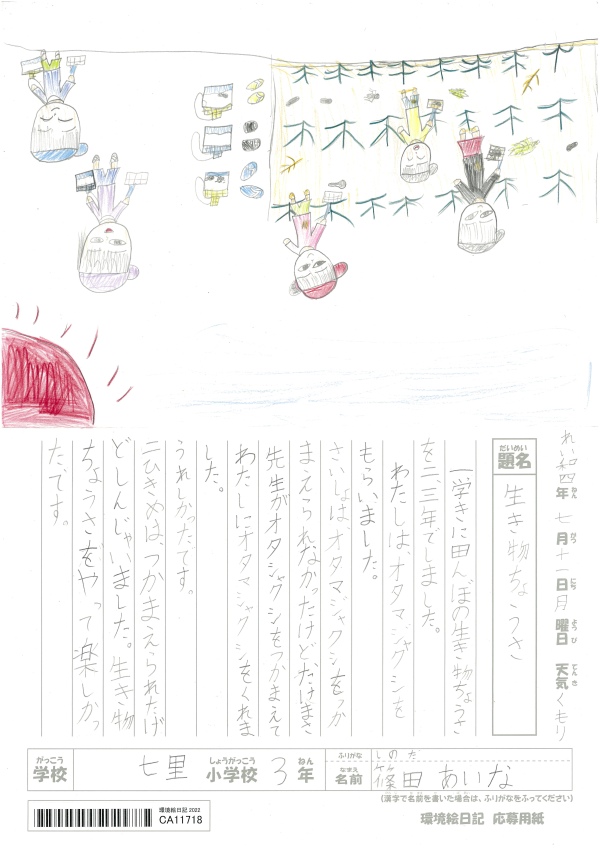 れい和四年七月十一日月曜日 天気くもり
ねん がつ にち ようび てんき
だいめい
題名 生き物ちょうさ
一学きに田んぼの生き物ちょうさ
を二、三年でしました。
わたしは、オタマジャクシを
もらいました。
さいしょはオタマジャクシをつか
まえられなかったけど、たけまさ
先生がオタマジャクシをつかまえて
わたしにオタマジャクシをくれま
した。
うれしかったです。
二ひきめは、つかまえられたけ
どしんじゃいました。生き物
ちょうさをやって楽しかっ
たです。
がっこう しょうがっこう ねん
学校 七里 小学校 3年
ふりがな しのだ
なまえ
名前 篠田 あいな
(漢字で名前を書いた場合は、ふりがなをふってください)
環境絵日記 2022
CA11718
環境絵日記 応募用紙